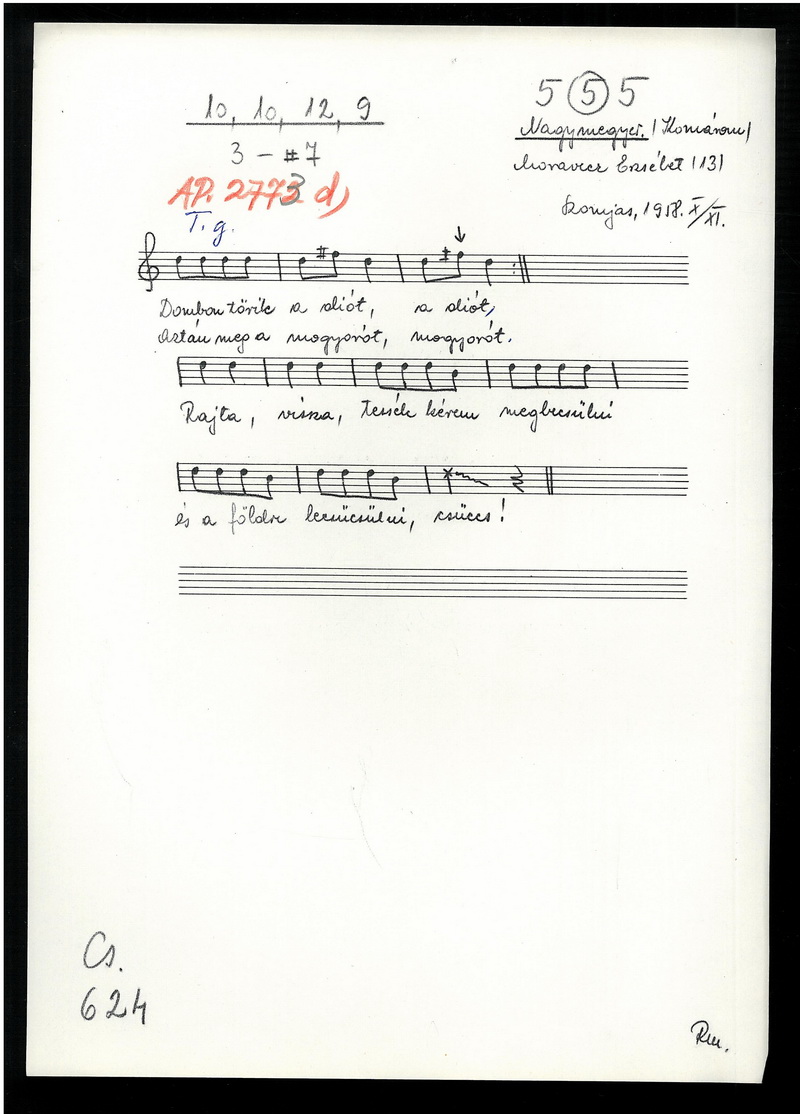 10, 10, 12, 9
3 – #7
AP. 2773 d)
T. g.
5 5 5
Nagymegyer. (Komárom)
Moravecz Erzsébet (13)
1958. X/XI.
Dombon törik a diót, a diót,
Aztán meg a mogyorót, mogyorót.
Rajta, vissza, tessék kérem megbecsülni
és a földre lecsücsülni, csüccs!
Cs.
624
Rm.